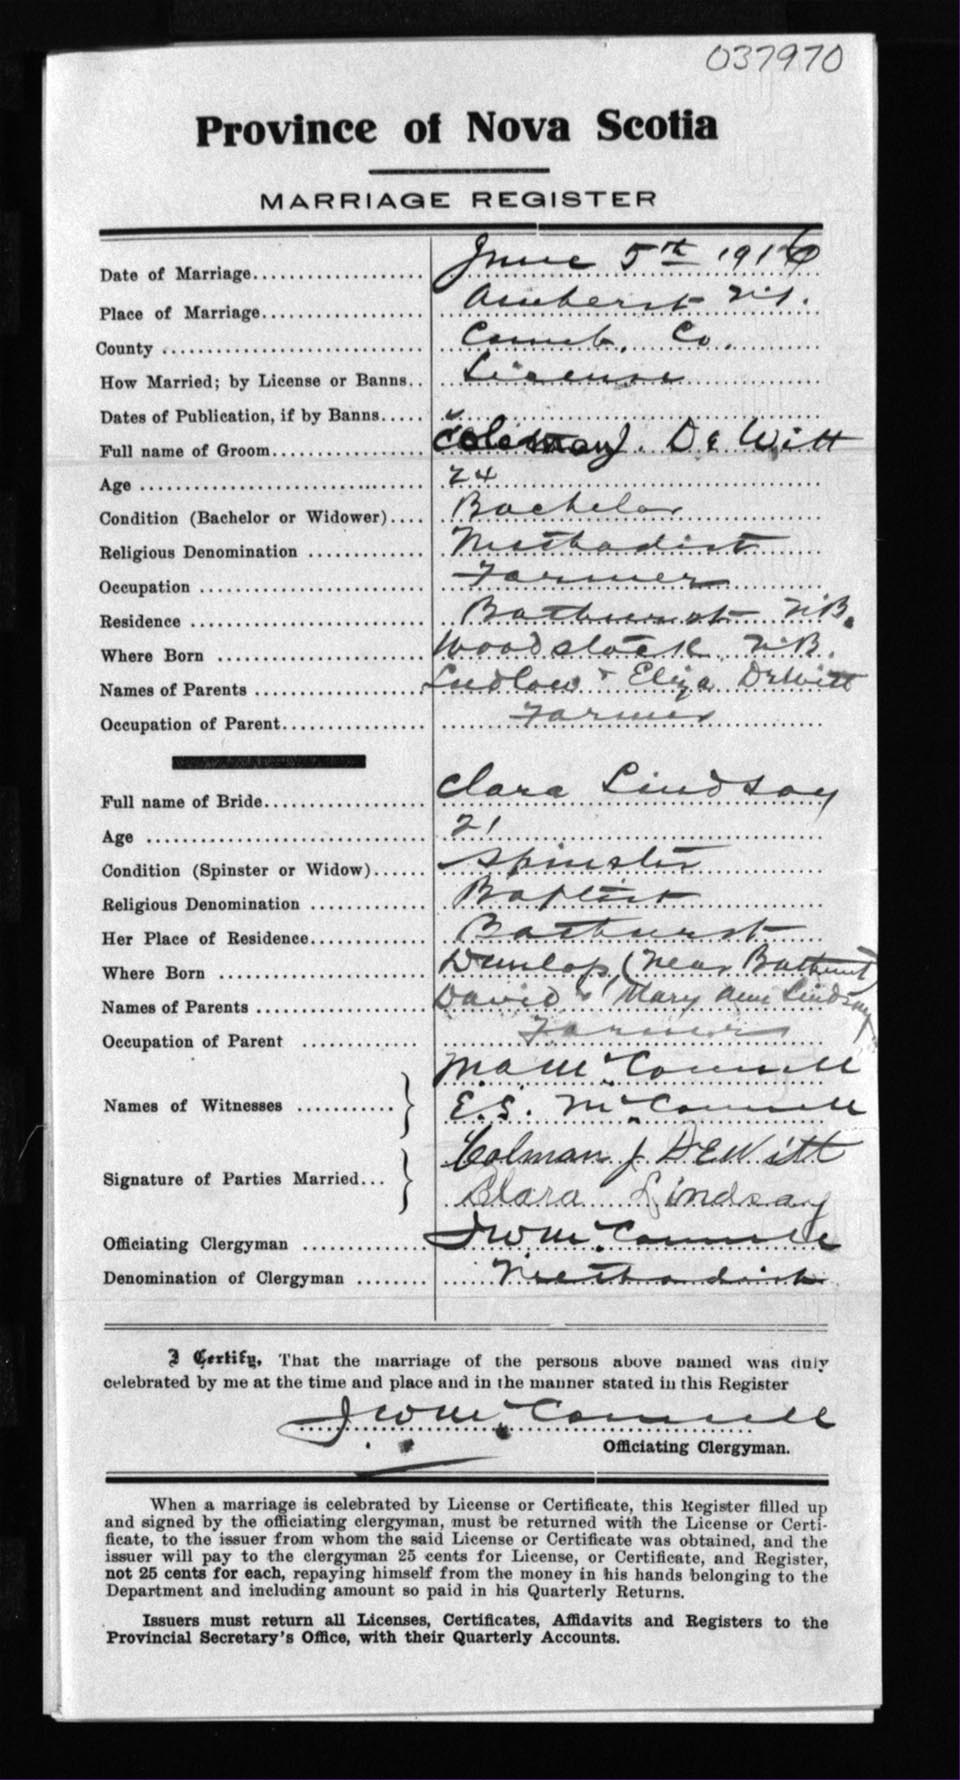 037970
Province of Nova Scotia
MARRIAGE REGISTER
Date of Marriage.................. June 5th 1916
Place of Marriage................. Amherst N.S.
County ........................... Cumb. Co.
How Married; by License or Banns.. License
Dates of Publication, if by Banns.....
Full name of Groom................ Coleman J. DeWitt
Age .............................. 24
Condition (Bachelor or Widower).... Bachelor
Religious Denomination ............ Methodist
Occupation ....................... Farmer
Residence ........................ Bathurst N.B.
Where Born ....................... Woodstock N.B.
Names of Parents ................. Ludlow + Eliza DeWitt
Occupation of Parent.............. Farmer
Full name of Bride................ Clara Lindsay
Age .............................. 21
Condition (Spinster or Widow)...... Spinster
Religious Denomination ............ Baptist
Her Place of Residence............ Bathurst
Where Born ....................... Dunlop (near Bathurst)
Names of Parents ................. David + Mary Ann Lindsay
Occupation of Parent ............ Farmer
M.A. McConnell
Names of Witnesses ........... E.S. McConnell
Colman J DEWitt
Signature of Parties Married... Clara Lindsay
Officiating Clergyman ............ J W McConnell
Denomination of Clergyman ........ Methodist
I Certify, That the marriage of the persons above named was duly
celebrated by me at the time and place and in the manner stated in this Register
J W McConnell
Officiating Clergyman.
When a marriage is celebrated by License or Certificate, this Register filled up
and signed by the officiating clergyman, must be returned with the License or Certi-
ficate, to the issuer from whom the said License or Certificate was obtained, and the
issuer will pay to the clergyman 25 cents for License, or Certificate, and Register,
not 25 cents for each, repaying himself from the money in his hands belonging to the
Department and including amount so paid in his Quarterly Returns.
Issuers must return all Licenses, Certificates, Affidavits and Registers to the
Provincial Secretary's Office, with their Quarterly Accounts.